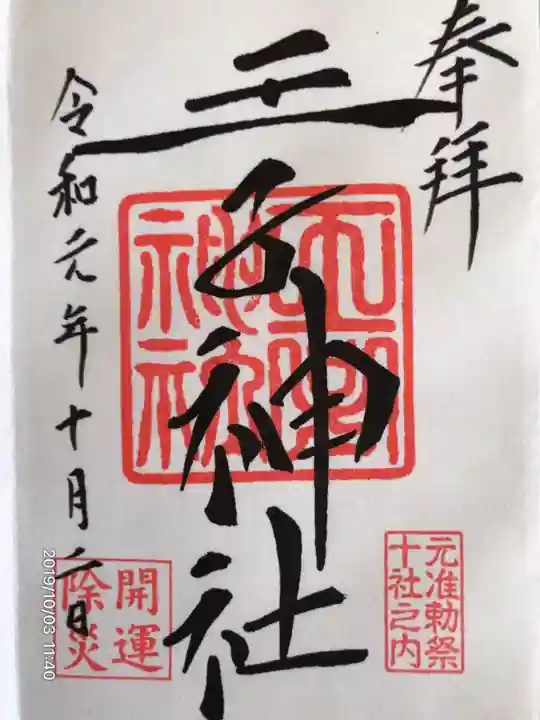 奉拝
王子神社
令和元年十月二日
元准勅祭
十社之内
開運
除災
2019/10/03 11:40